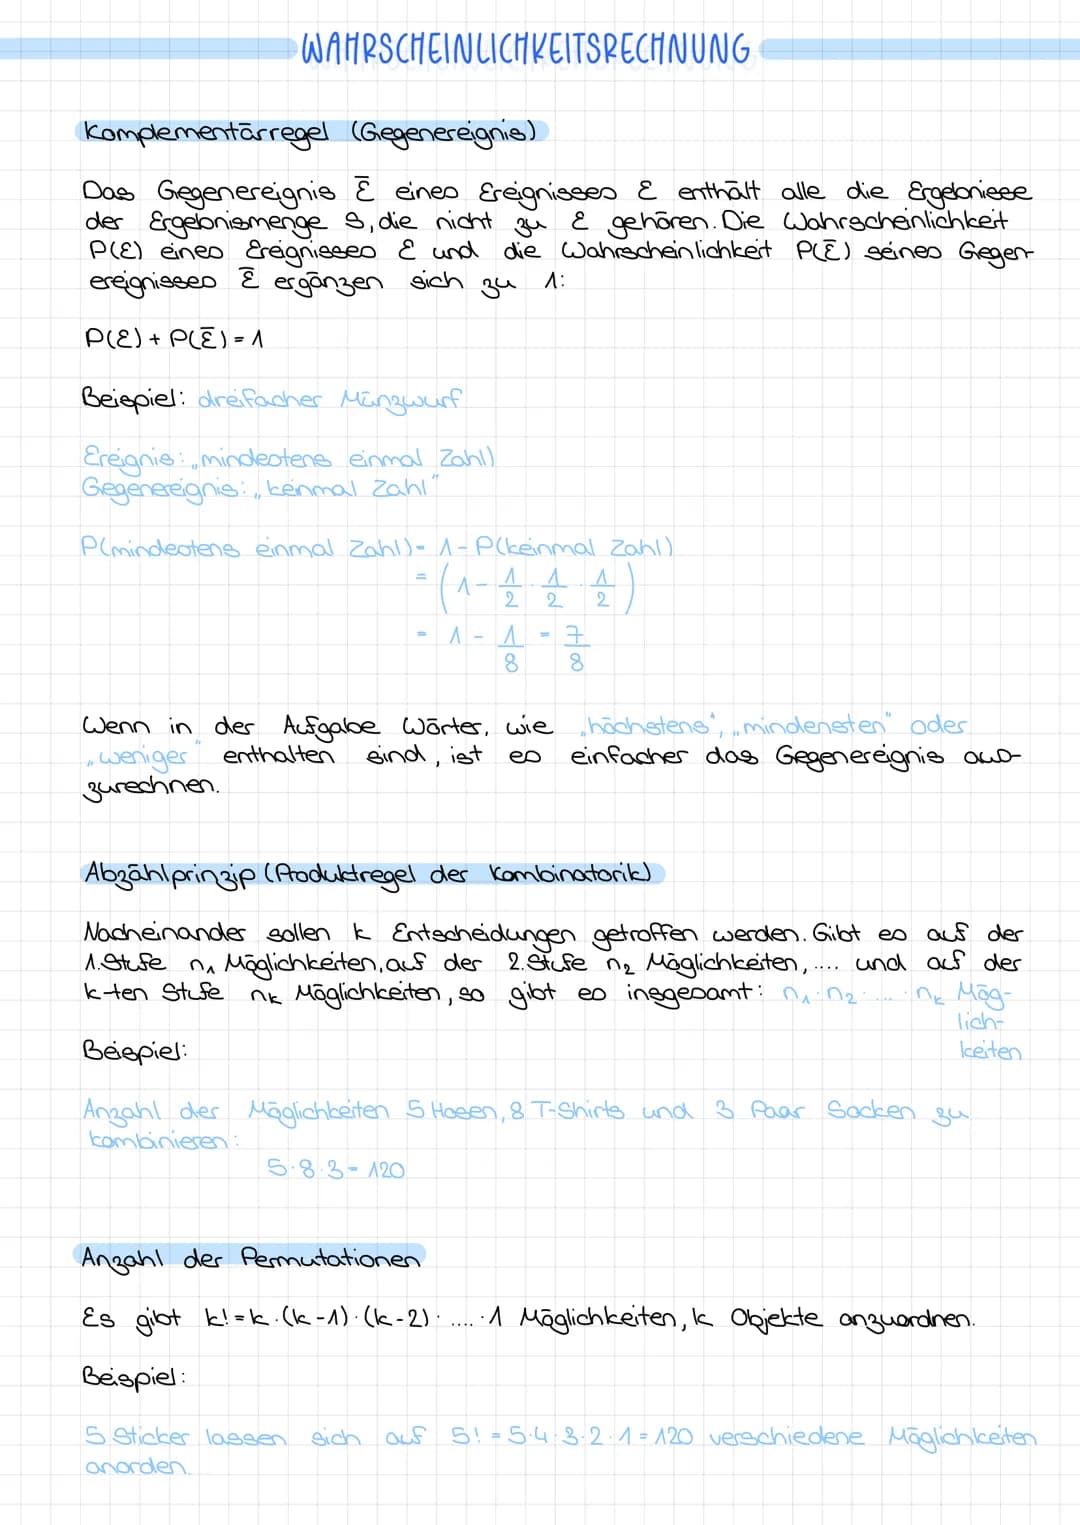 WAHRSCHEINLICHKEITSRECHNUNG
Komplementärregel (Gegenereignis)
Das Gegenereignis Ē eines Ereignisses E enthält alle die Ergebnisse
der Ergebnismenge S, die nicht zu E gehören. Die Wahrscheinlichkeit
P(E) eines Ereignisses E und die Wahrscheinlichkeit P(Ē) seines Gegen-
ereignisses Ē ergänzen sich zu 1:
P(E) + P(Ē) = 1
Beispiel: dreifacher Münzwurf
Ereignis: „mindestens einmal Zahl)
Gegenereignis: „keinmal Zahl"
P(mindestens einmal Zahl) = 1 - P(keinmal Zahl)
= (1 - 1/2 · 1/2 · 1/2)
= 1 - 1/8 = 7/8
Wenn in der Aufgabe Wörter, wie „höchstens", „mindensten" oder
„weniger" enthalten sind, ist es einfacher das Gegenereignis aus-
zurechnen.
Abzählprinzip (Produktregel der Kombinatorik)
Nacheinander sollen k Entscheidungen getroffen werden. Gibt es auf der
1. Stufe n₁ Möglichkeiten, auf der 2. Stufe n₂ Möglichkeiten, .... und auf der
k-ten Stufe nₖ Möglichkeiten, so gibt es insgesamt: n₁ · n₂ · ... · nₖ Mög-
lich-
keiten
Beispiel:
Anzahl der Möglichkeiten 5 Hosen, 8 T-Shirts und 3 Paar Socken zu
kombinieren:
5 · 8 · 3 = 120
Anzahl der Permutationen
Es gibt k! = k · (k - 1) · (k - 2) · .... · 1 Möglichkeiten, k Objekte anzuordnen.
Beispiel:
5 Sticker lassen sich auf 5! = 5 · 4 · 3 · 2 · 1 = 120 verschiedene Möglichkeiten
anorden.